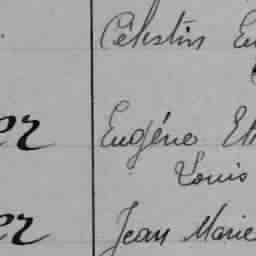 Célestin
er Eugène
Louis
er Jean Marie